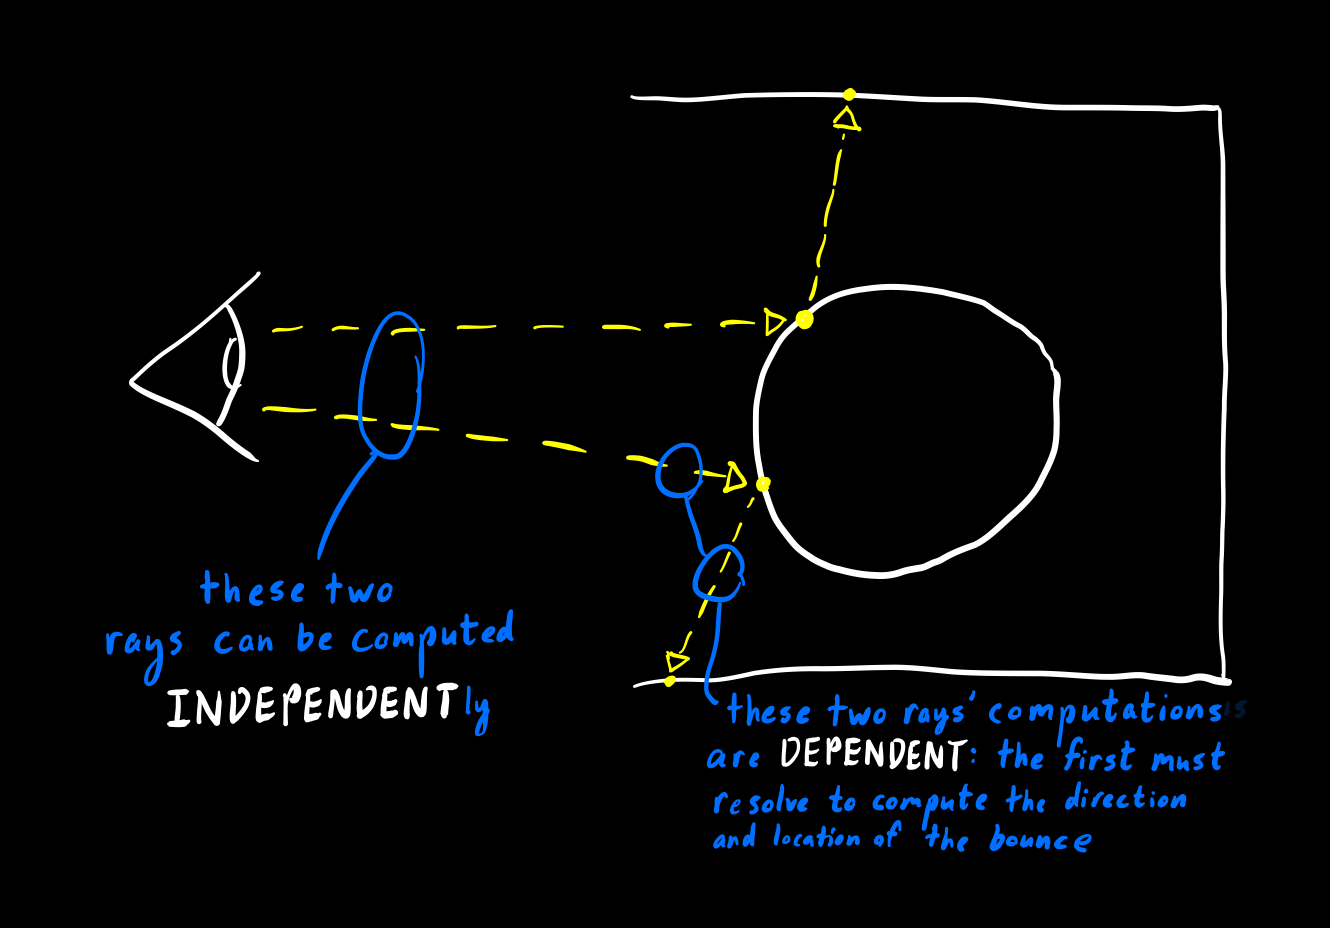 these two
rays can be computed
INDEPENDENTly
these two rays' computations
are DEPENDENT: the first must
resolve to compute the direction
and location of the bounce